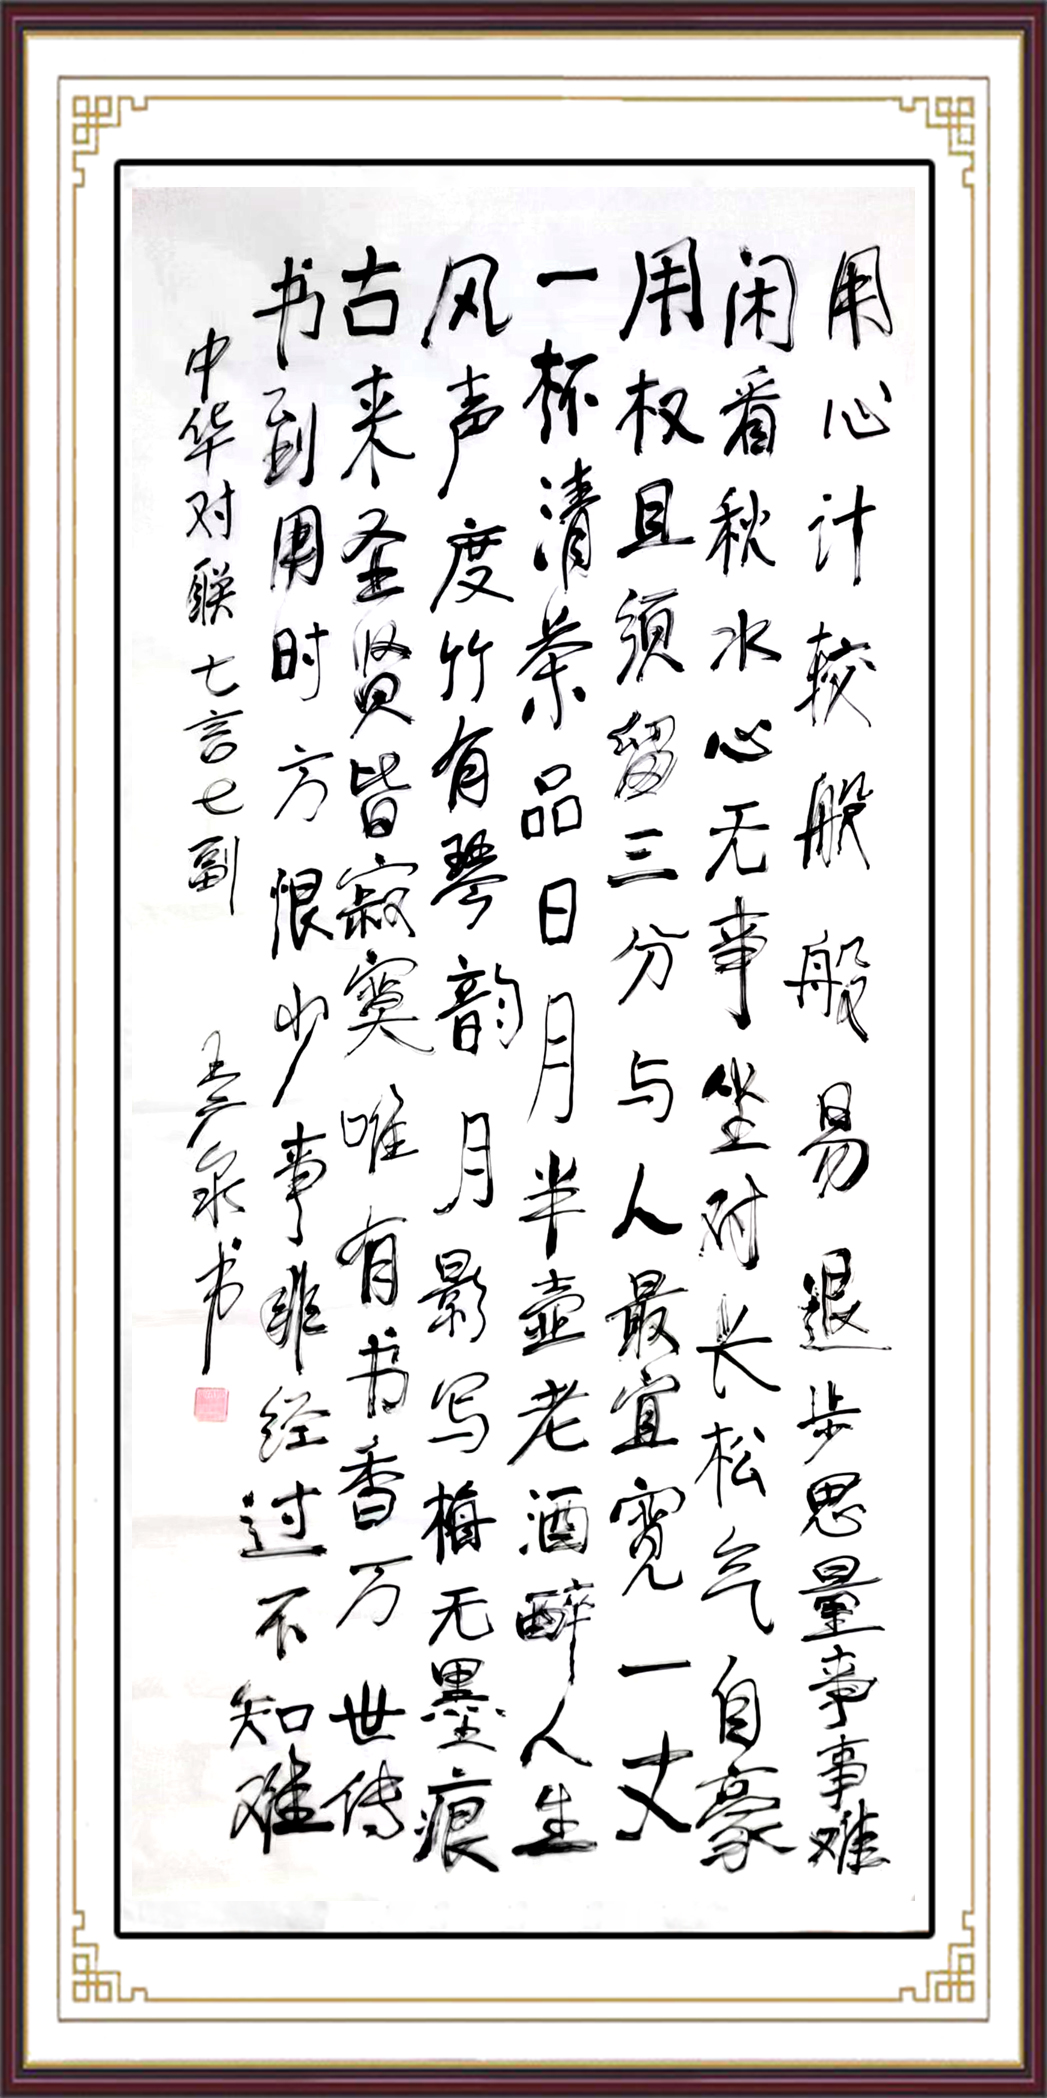 用心计较般般易退步思量事事难
闲看秋水心无事坐对长松气自豪
用权且须留三分与人最宜宽一丈
一杯清茶品日月半壶老酒醉人生
风声度竹有琴韵月影写梅无墨痕
古来圣贤皆寂寞唯有书香万世传
书到用时方恨少事非经过不知难
中华对联七言七副
泉书